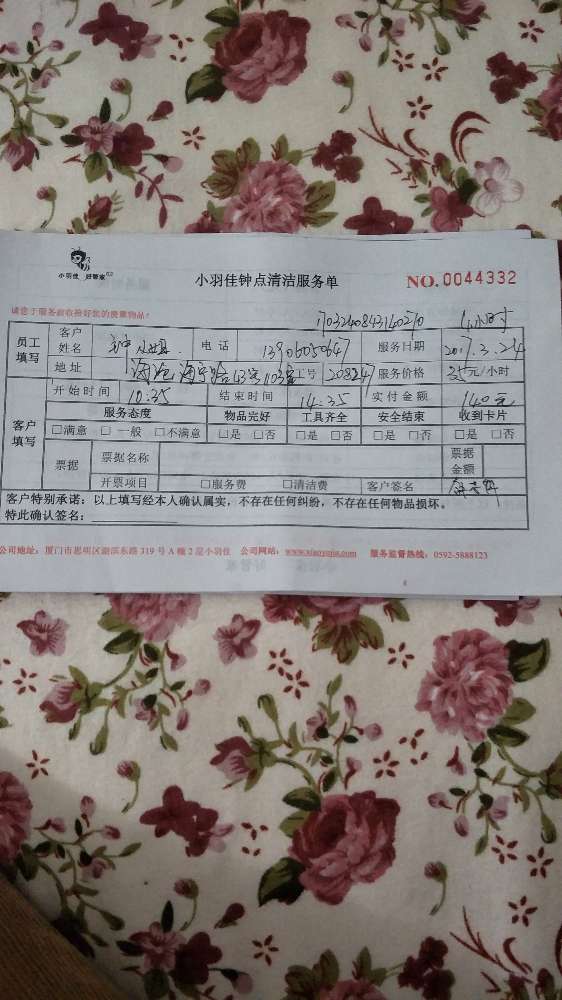 小羽佳 好管家
小羽佳钟点清洁服务单
NO.0044332
请您于服务前收捡好您的贵重物品!
1703240843140270 4小时
员工填写 客户姓名 钟小姐 电话 13906050647 服务日期 2017.3.24
地址 13号103室 工号 208247 服务价格 35元/小时
开始时间 10:35 结束时间 14:35 实付金额 140元
客户填写 服务态度 物品完好 工具齐全 安全结束 收到卡片
□满意 □一般 □不满意 □是 □否 □是 □否 □是 □否 □是 □否
票据 票据名称 票据金额
开票项目 □服务费 □清洁费 客户签名
客户特别承诺:以上填写经本人确认属实,不存在任何纠纷,不存在任何物品损坏。
特此确认签名:
公司地址:厦门市思明区湖滨东路 319 号 A 幢 2 层小羽佳 公司网站:www.xiaoyujia.com 服务监督热线:0592-5888123